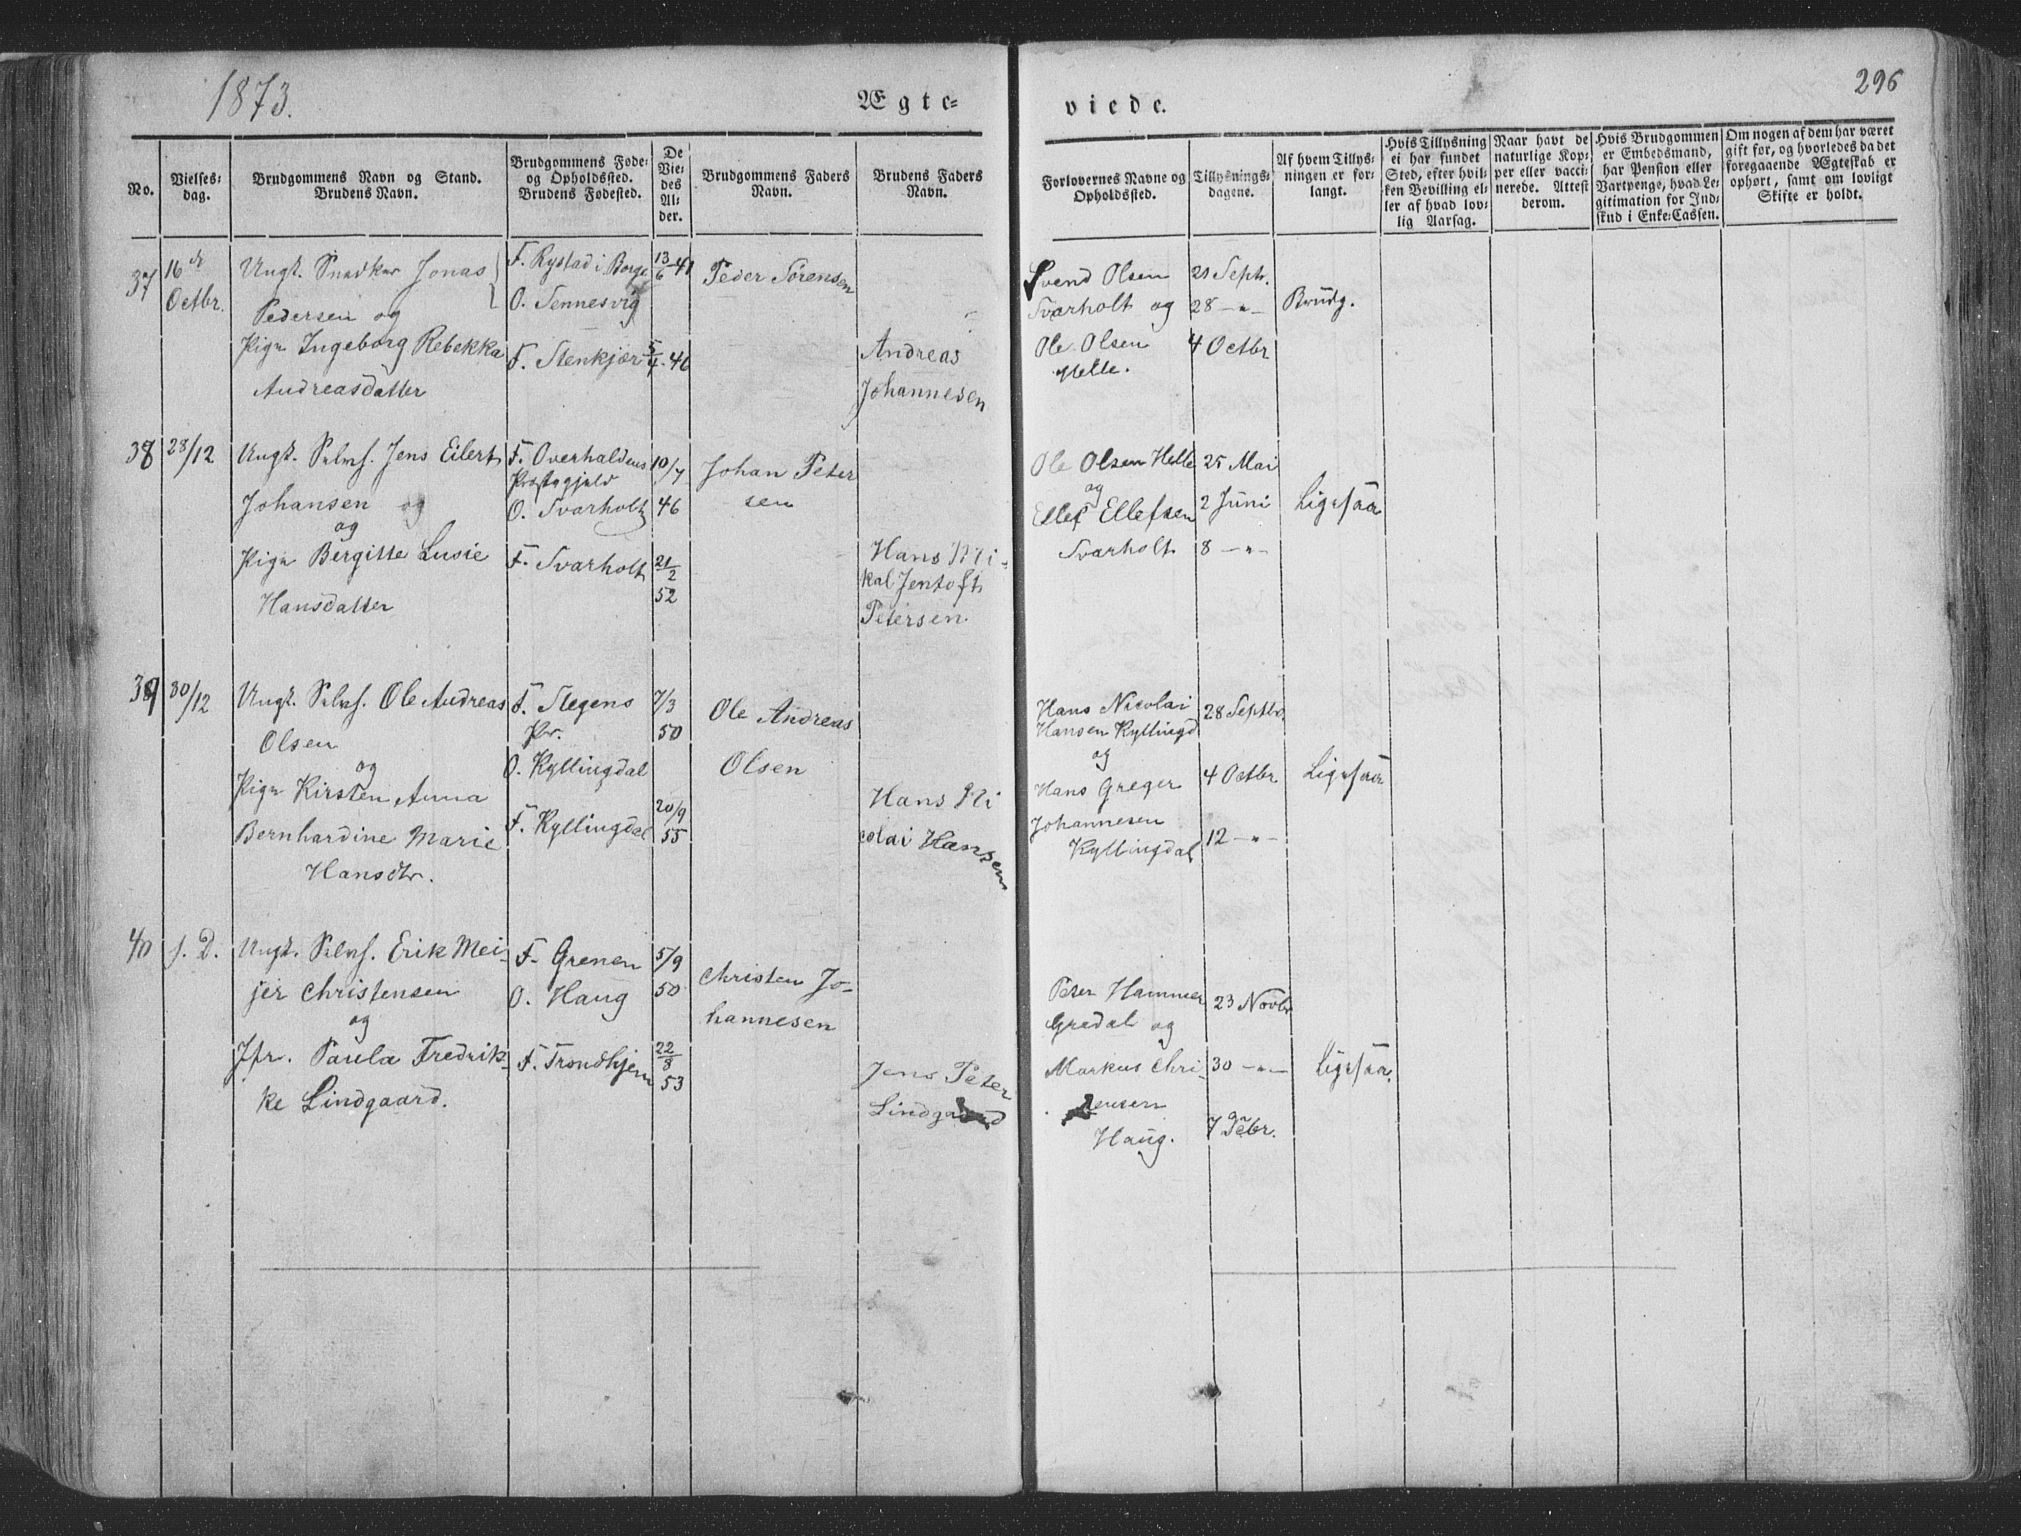 1873.
Ægte=
viede.
296
No.
Vielses-
dag.
Brudgommens Navn og Stand.
Brudens Navn.
Brudgommens Føde-
og Opholdssted.
Brudens Fødested.
De
Vie-
des
Al-
der.
Brudgommens Faders
Navn.
Brudens Faders
Navn.
Forlovernes Navne og
Opholdssted.
Tillysnings-
dagene.
Af hvem Tillys-
ningen er for-
langt.
Hvis Tillysning
ei har fundet
Sted, efter hvil-
ken Bevilling el-
ler af hvad lov-
lig Aarsag.
Naar havt de
naturlige Kop-
per eller vacci-
nerede. Attest
derom.
Hvis Brudgommen
er Embedsmand,
har Pension eller
Vartpenge, hvad Le-
gitimation for Ind-
skud i Enke-Cassen.
Om nogen af dem har været
gift før, og hvorledes da det
foregaaende Ægteskab er
ophørt, samt om lovligt
Skifte er holdt.
37
16
Octbr.
Ungk. Snedker Jonas
Pedersen og
Pige Ingeborg Rebekka
Andreasdatter
F. Rystad i Borge
O. Sennesvig
F. Stenkjær
13/6 41
5/4 46
Peder Sørensen
Andreas
Johannesen
Svend Olsen
Svarholt og
Ole Olsen
Helle.
21 Septr.
28 - " -
4 Octbr
Brudg.
38
28/12
Ungk. Selvf. Jens Eilert
Johansen og
og
Pige Bergitte Lusie
Hansdatter
F. Overhaldens
Præstegjeld
O. Svarholt
F. Svarholt
10/7
46
21/2
52
Johan Peter
sen
Hans Mi-
kal Jentoft
Petersen
Ole Olsen Helle
og
Ellef Ellefsen
Svarholt
25 Mai
2 Juni
8 - " -
Ligesaa
39
30/12
Ungk. Selvf. Ole Andreas
Olsen
og
Pige Kirsten Anna
Bernhardine Marie
Hansdtr.
F. Stegens
Pr.
O. Kyllingdal
F. Kyllingdal
7/3
50
20/9
55
Ole Andreas
Olsen
Hans Ni
colai Hansen
Hans Nicolai
Hansen Kyllingd
og
Hans Greger
Johannesen
Kyllingdal
28 Septbr
4 Octbr
12 - " -
Ligesaa
40
s. D.
Ungk. Selvf. Erik Mei-
jer Christensen
og
Jfr. Paula Fredrik-
ke Lindgaard.
F. Grenen
O. Haug
F. Trondhjem
5/9
50
22/8
53
Christen Jo-
hannesen
Jens Peter
Lindgaard
Peter Hammer
Grødal og
Markus Chri-
stensen
Haug.
23 Novbr
30 - " -
7 Debr.
Ligesaa.